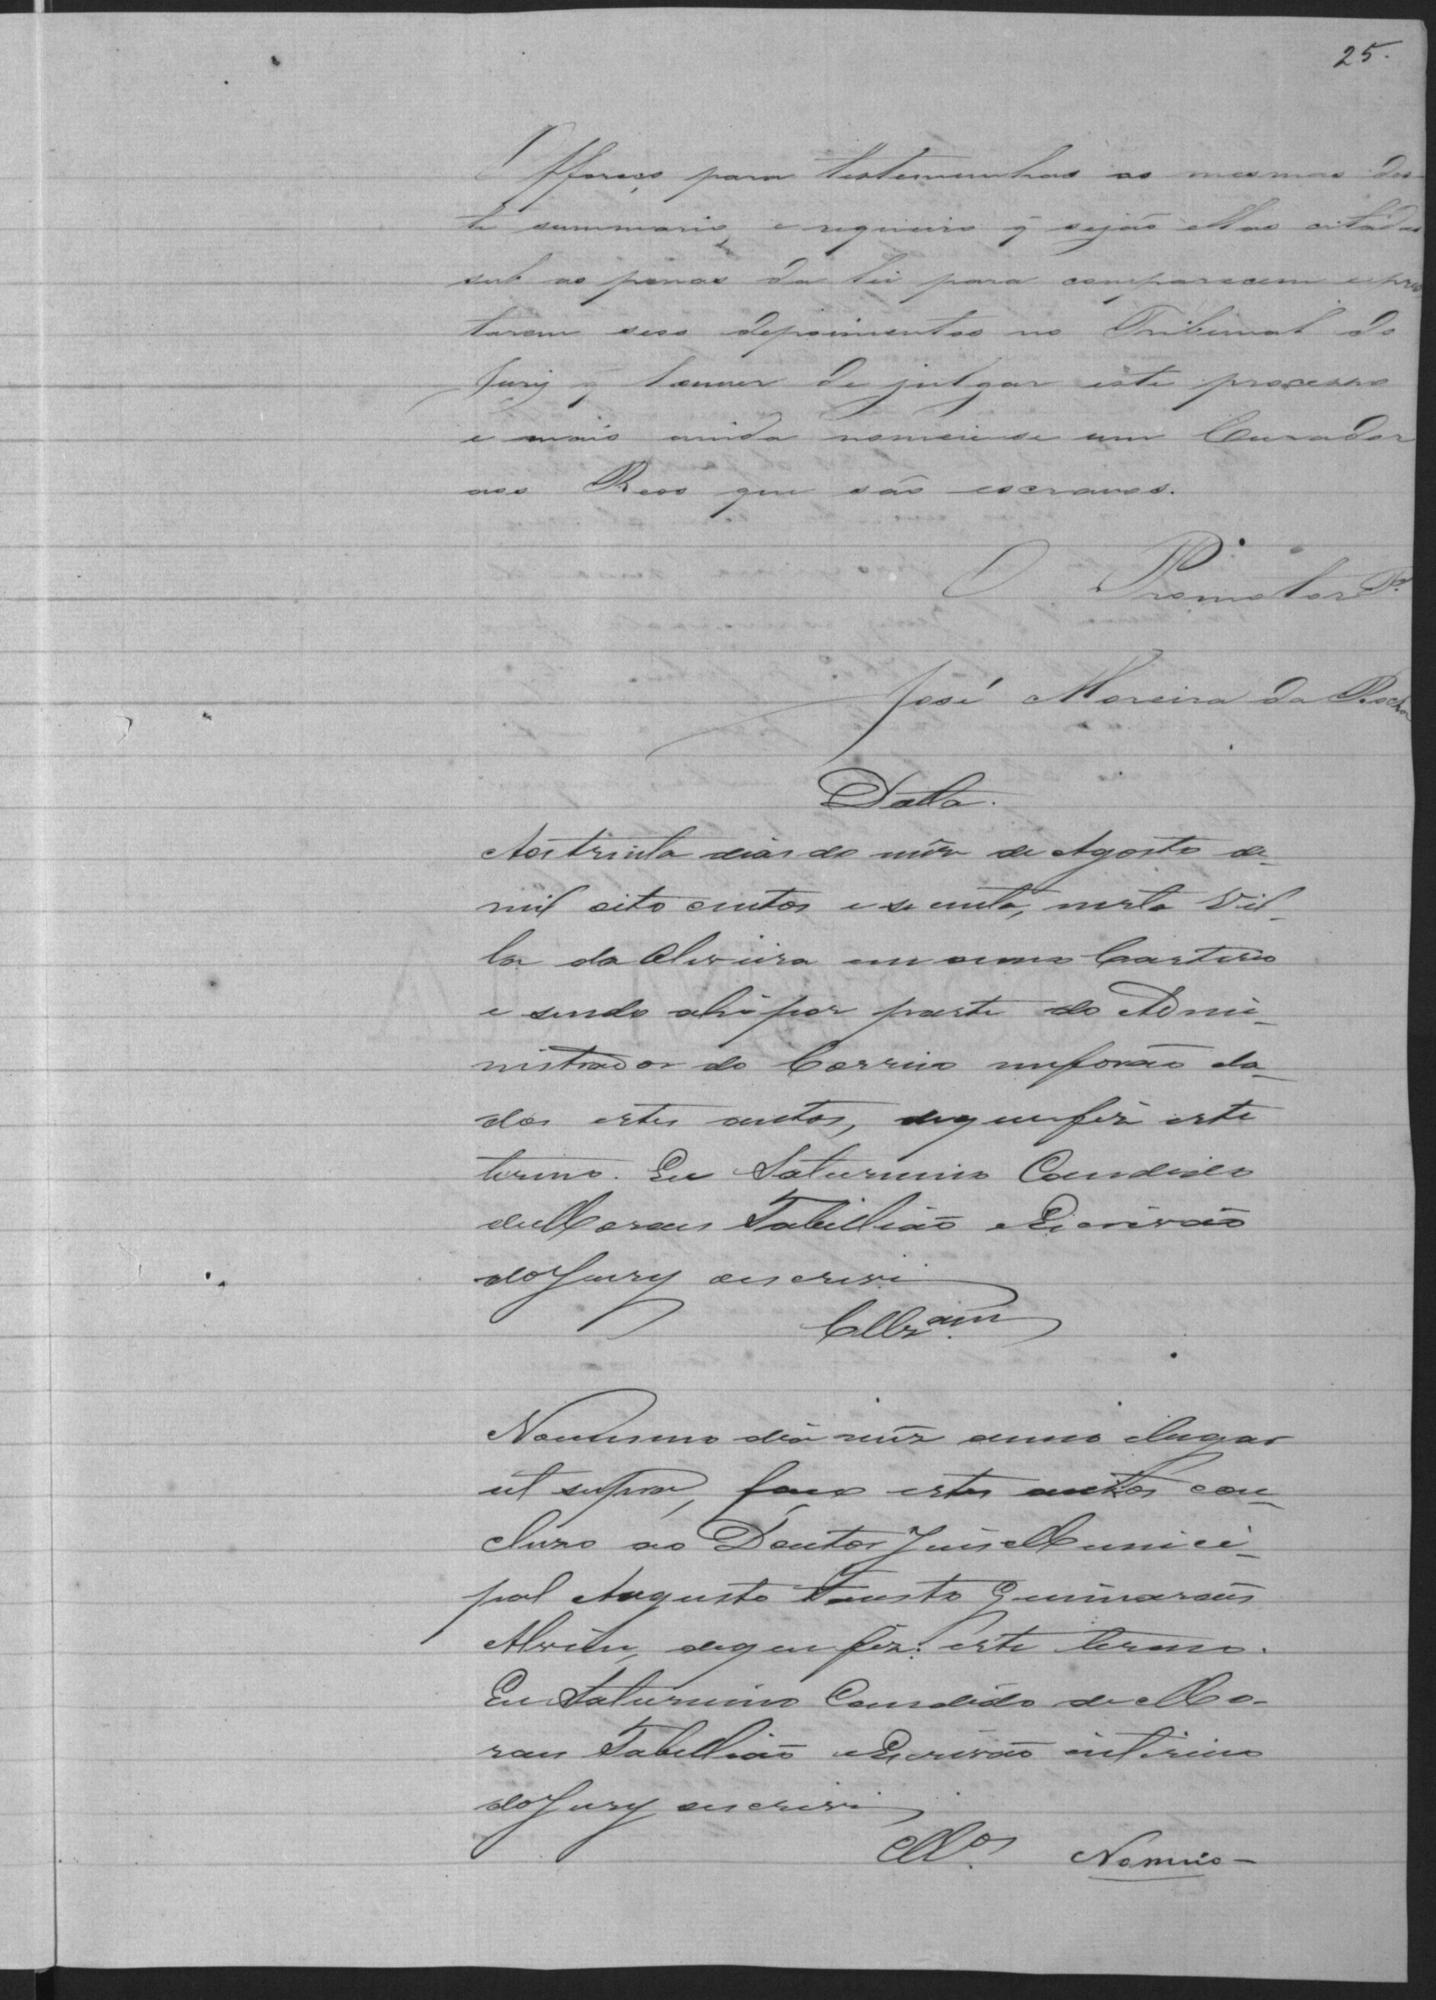 25.
Offereço para testemunhas as mesmas des-
te summario, e requeiro q̃ sejão ellas citadas
sub as penas da lei para comparecerem e pres
tarem seos depoimentos no Tribunal do
Jury q̃ houver de julgar este processo
e mais ainda nomeie-se um Curador
aos Reos que são escravos.
O Promotor P.
José Moreira da Rocha
Data.
Aos trinta dias do mês de Agosto de
mil oito centos e secenta, nesta Vil-
la da Oliveira em meu Cartorio
e sendo ahi por parte do Admi-
nistrador do Correio me forão da-
dos estes autos, de que fiz este
termo. Eu Saturnino Candido
de Moraes Tabellião e Escrivão
do Jury o escrevi
Cllz.am
No mesmo dia mêz anno e lugar
ut supra, faço estes autos con-
cluzo ao Doutor Juis Munici-
pal Augusto Fausto Guimarães
Alvim, de que fiz este termo.
Eu Saturnino Candido de Mo-
raes Tabellião e Escrivão interino
do Jury o escrevi
Cll.os Nomeio-